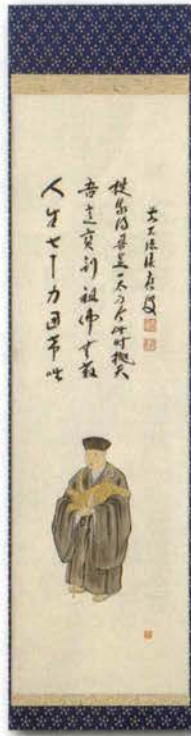 人生七十力囲希咄
吾這寶剣祖佛共殺
提我得具足一太刀今此時抛天